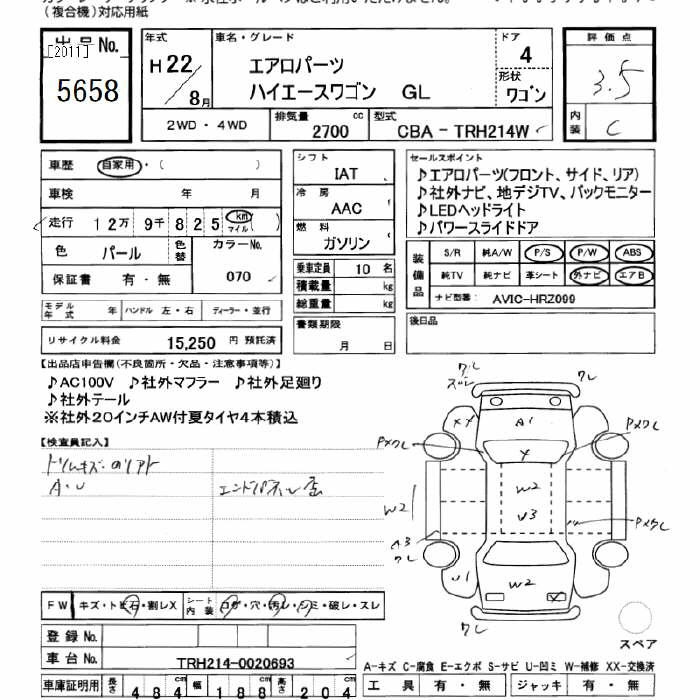 (複合機)対応用紙
出品No.
[2011]
5658
年式
H22/8月
車名・グレード
エアロパーツ
ハイエースワゴン GL
ドア
4
形状
ワゴン
評価点
3.5
内装
C
2WD・4WD
排気量 2700 cc
型式 CBA-TRH214W
車歴 自家用・( )
車検 年 月
走行 12万9千825 km マイル( )
色 パール 色替 カラーNo. 070
保証書 有・無
モデル年式 年 ハンドル 左・右 ディーラー・並行
リサイクル料金 15,250 円 預託済
シフト IAT
冷房 AAC
燃料 ガソリン
乗車定員 10 名
積載量 kg
総重量 kg
書類期限
月 日
セールスポイント
♪エアロパーツ(フロント、サイド、リア)
♪社外ナビ、地デジTV、バックモニター
♪LEDヘッドライト
♪パワースライドドア
装備品
S/R 純A/W P/S P/W ABS
純TV 純ナビ 革シート 外ナビ エアB
ナビ型番: AVIC-HRZ099
後日品
【出品店申告欄(不良箇所・欠品・注意事項等)】
♪AC100V ♪社外マフラー ♪社外足廻り
♪社外テール
※社外20インチAW付夏タイヤ4本積込
【検査員記入】
トリムキズ・
A・U
エンドパネル歪
ワレ
ズレ
ワレ
XX
A1
PXワレ
PXワレ
Y
W2
W2
U3
PXワレ
A3
ワレ
U1
W2
Y
ワレ
スペア
FW キズ・トビ石・割レX シート内装 コゲ・穴・汚レ・シミ・破レ・スレ
登録No.
車台No. TRH214-0020693
車庫証明用 長さ 484 cm 幅 188 cm 高さ 204 cm
A-キズ C-腐食 E-エクボ S-サビ U-凹ミ W-補修 XX-交換済
工具 有・無 ジャッキ 有・無